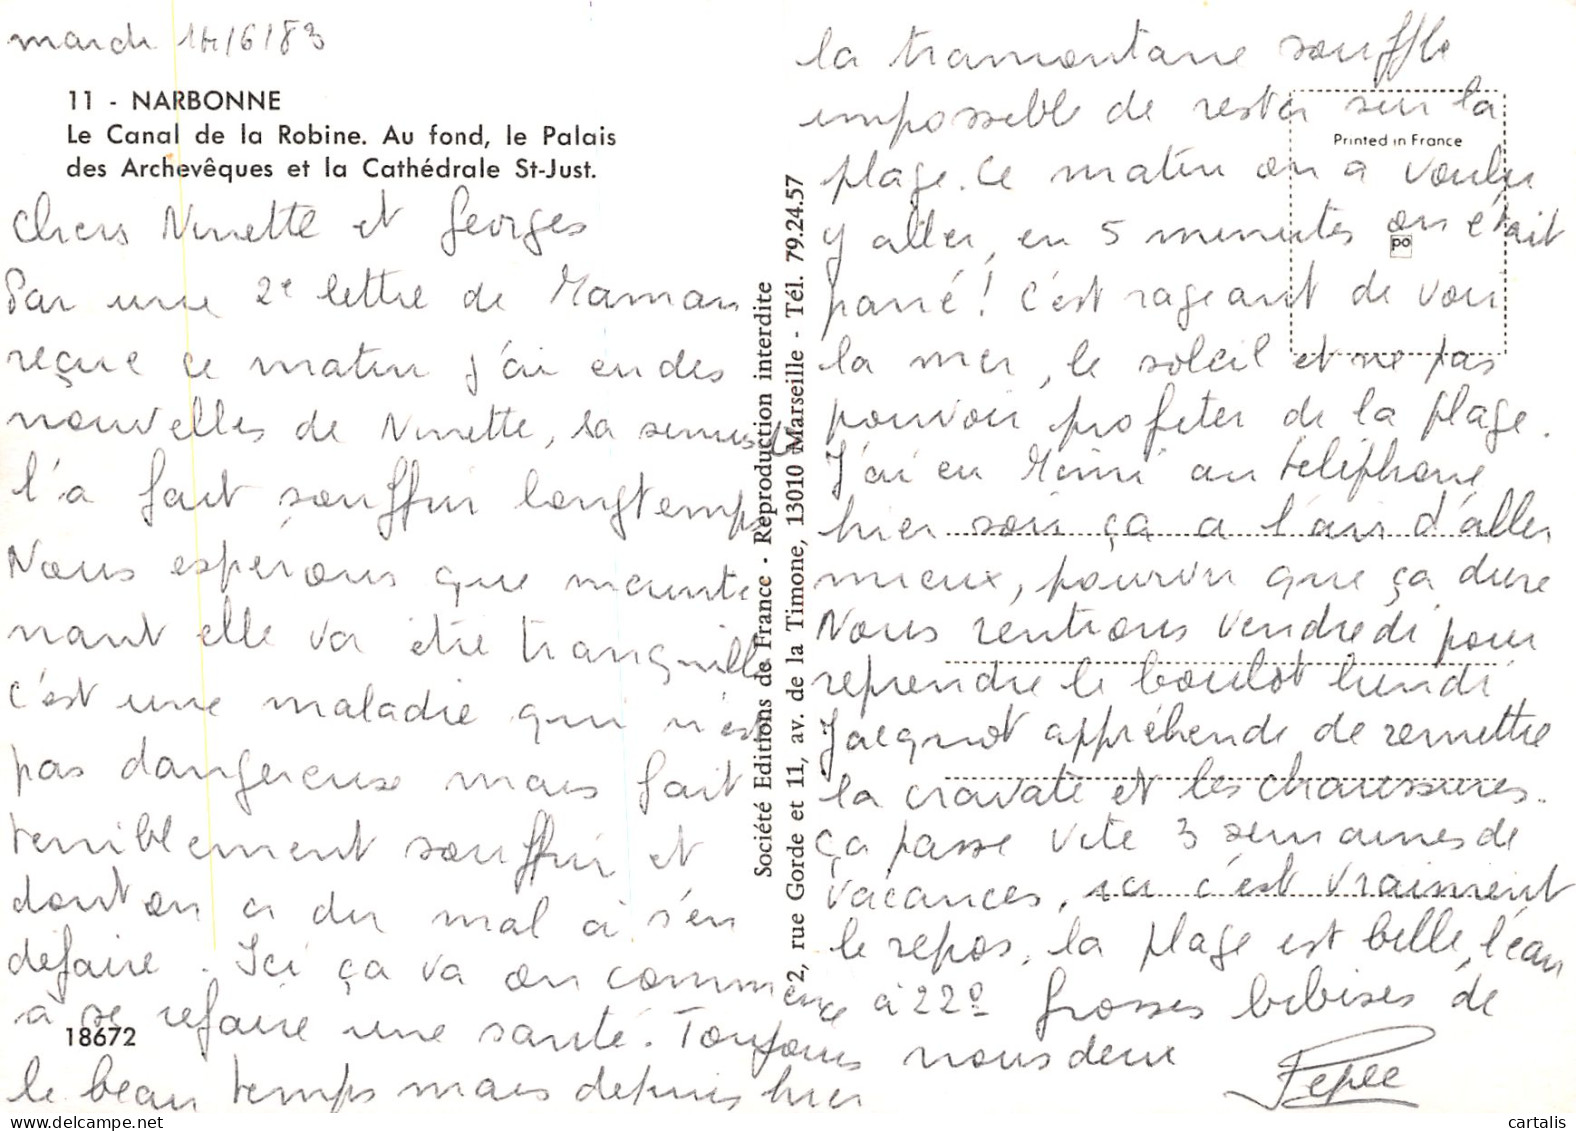 mardi 14/6/83
11 - NARBONNE
Le Canal de la Robine. Au fond, le Palais
des Archevêques et la Cathédrale St-Just.
Chers Ninette et Georges
Par une 2e lettre de Maman
reçue ce matin j'ai eu des
nouvelles de Ninette, sa sinusite
l'a fait souffrir longtemps
Nous espérons que mainte
nant elle va être tranquille
c'est une maladie qui n'est
pas dangereuse mais fait
terriblement souffrir et
dont on a du mal à s'en
défaire. Ici ça va on commence
à se refaire une santé. Toujours
18672
le beau temps mais depuis hier
Société Editions de France - Reproduction interdite
2, rue Gorde et 11, av. de la Timone, 13010 Marseille - Tél. 79.24.57
la tramontane souffle
impossible de rester sur la
Printed in France
plage. Ce matin on a voulu
y aller, en 5 minutes on était
po
pané! C'est rageant de voir
la mer, le soleil et ne pas
pouvoir profiter de la plage.
J'ai eu Mimi au téléphone
hier soir ça a l'air d'aller
mieux, pourvu que ça dure
Nous rentrons vendredi pour
reprendre le boulot lundi
Jacquot appréhende de remettre
la cravate et les chaussures..
ça passe vite 3 semaines de
vacances, ici c'est vraiment
le repos, la plage est belle, l'eau
à 22º Grosses bibises de
nous deux
Pépée
cartalis